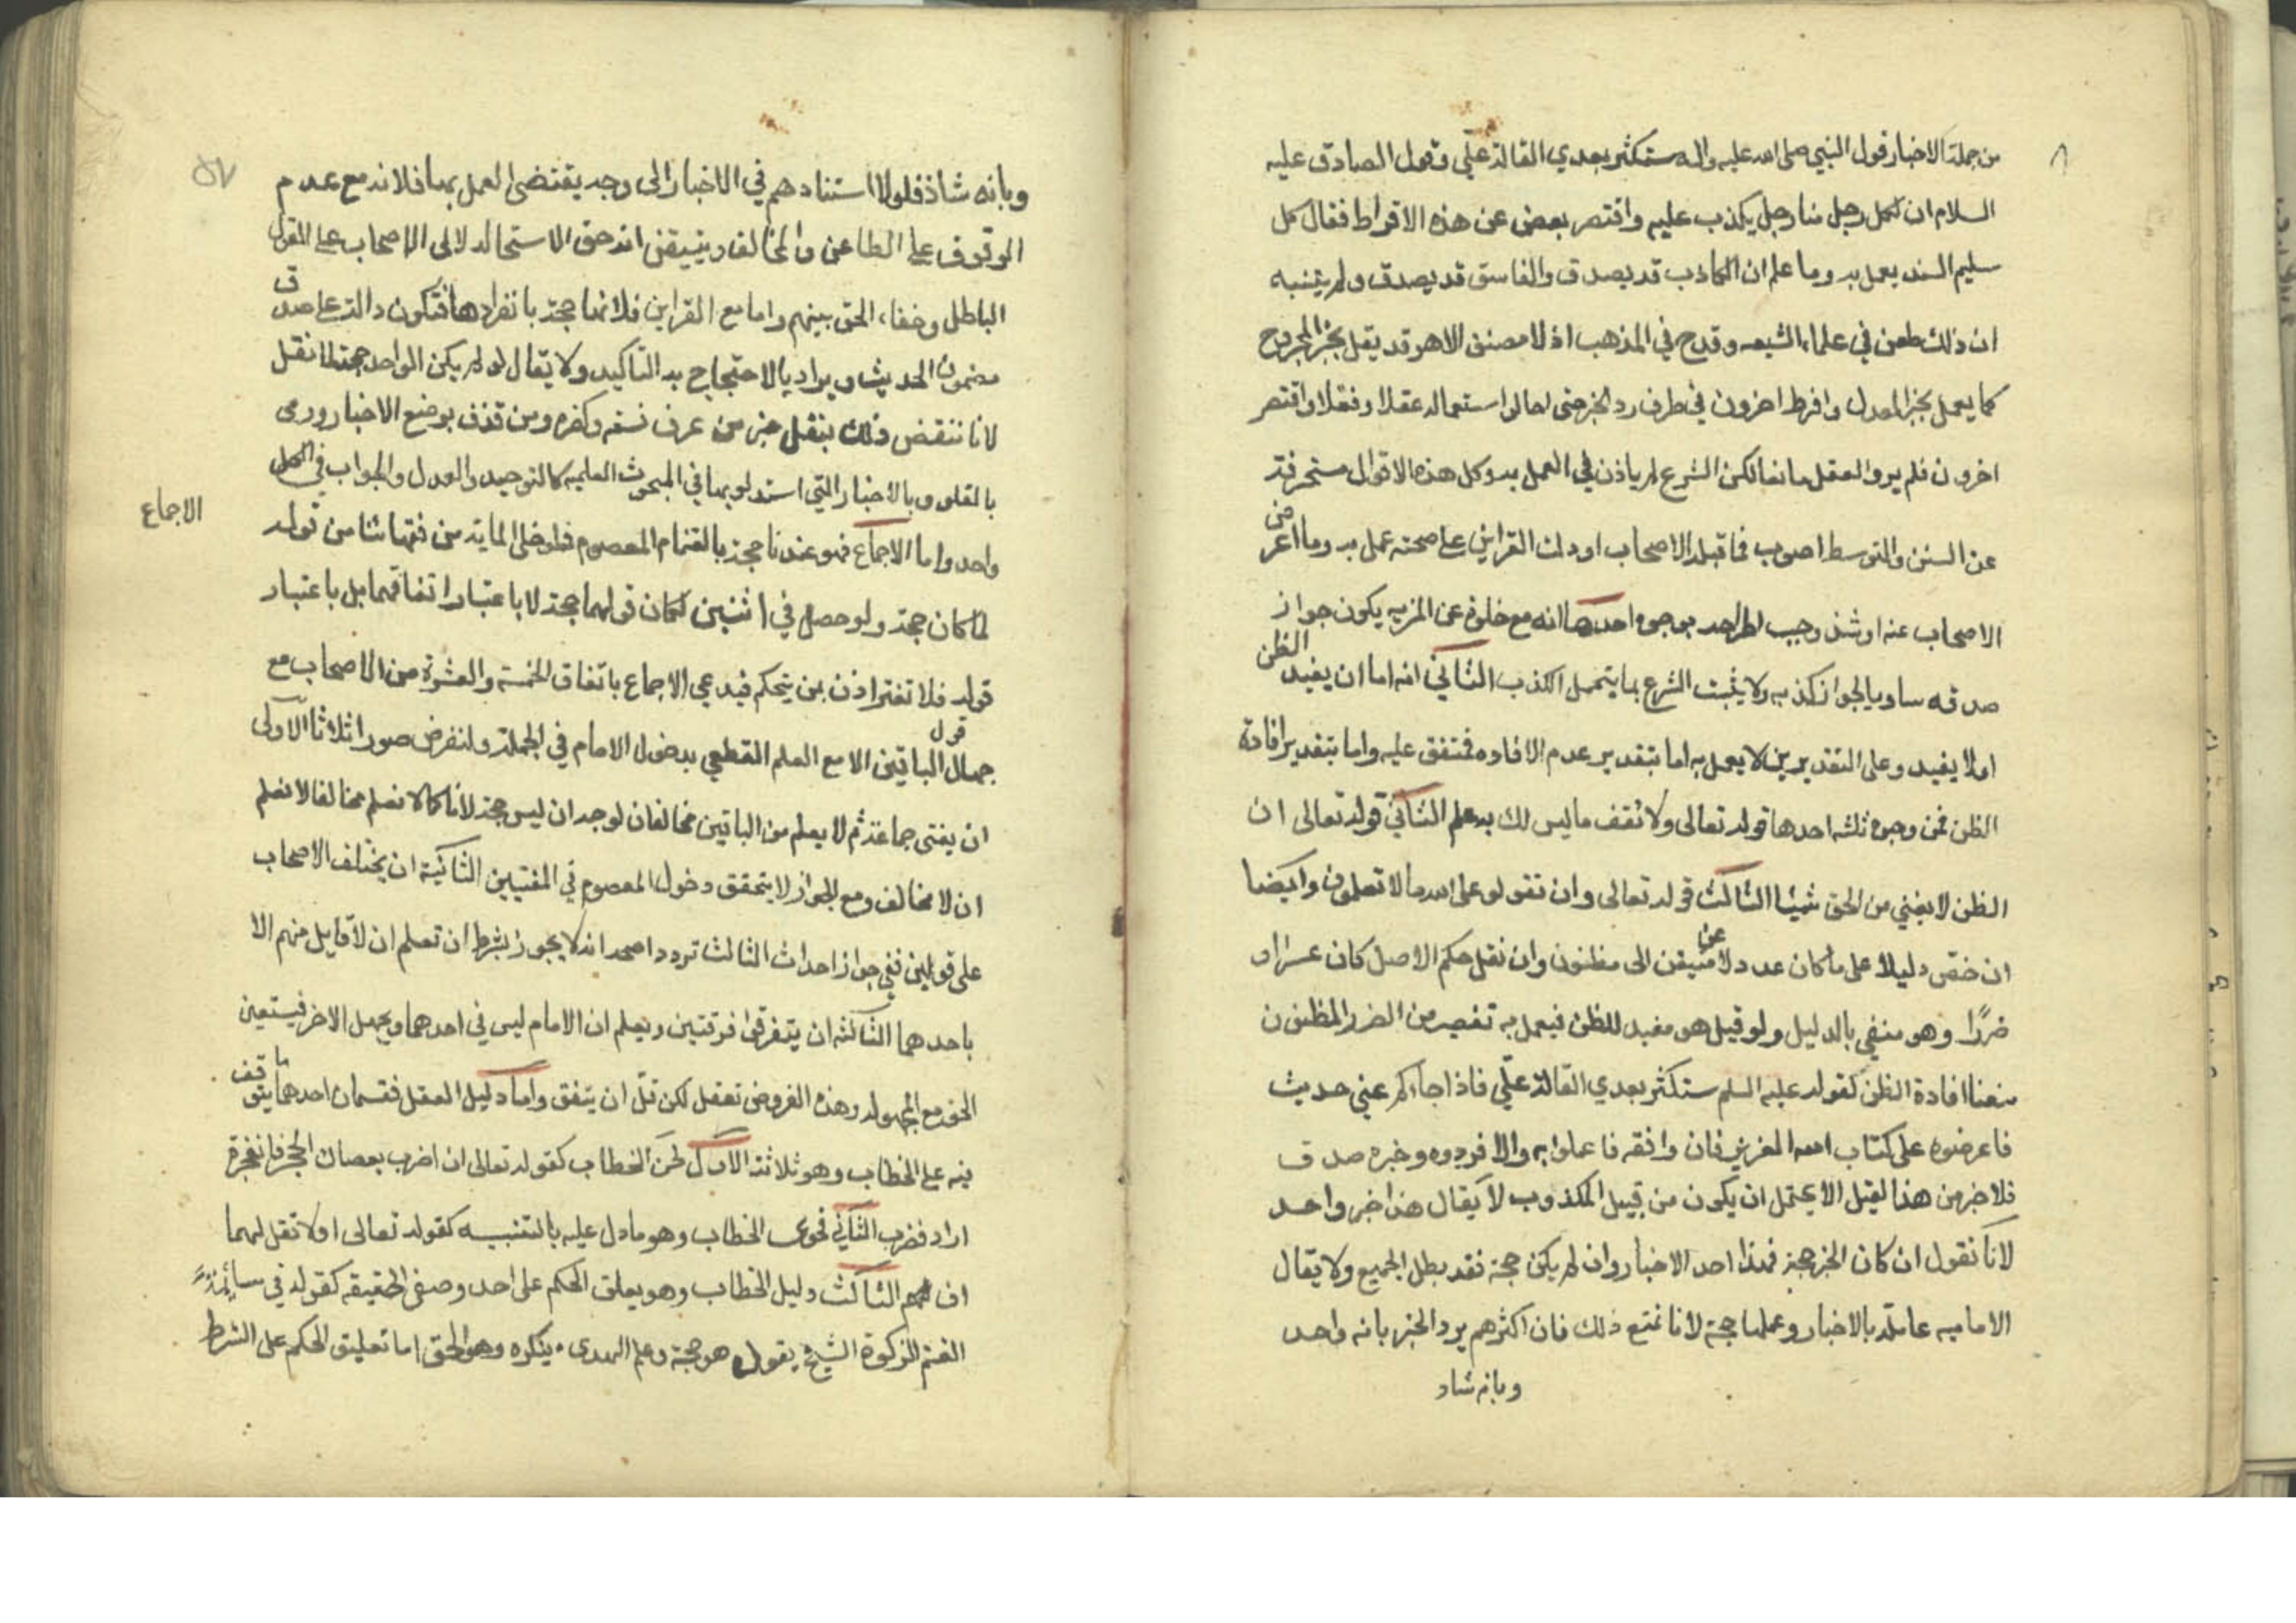 ٨
من جملة الاخبار قول النبي صلى الله عليه واله ستكثر بعدي القالة عليّ وقول الصادق عليه
السلام ان لكل رجل منا رجل يكذب عليه واقتصر بعض عن هذه الافراط فقال كل
سليم السند يعمل به وما علم ان الكاذب قد يصدق والفاسق قد يصدق ولم يتنبه
ان ذلك طعن في علماء الشيعه وقدح في المذهب اذ لا مصنف الا هو قد يعمل بخبر المجروح
كما يعمل بخبر المعدل وافرط اخرون في طرف رد الخبر حتى احالوا استعماله عقلا ونقلا واقتصر
اخرون فلم يروا العقل مانعا لكن الشرع لم ياذن في العمل به وكل هذه الاقوال منحرفة
عن السنن والتوسط اصوب فما قبله الاصحاب او دلت القراين على صحته عمل به وما اعرض
الاصحاب عنه او شذ وجب اطراحه بوجوه احدها انه مع خلوه عن المزيه يكون جواز
صدقه مساويا لجواز كذبه ولا يثبت الشرع بما يحتمل الكذب الثاني انه اما ان يفيد الظن
او لا يفيد وعلى التقديرين لا يعمل به اما بتقدير عدم الافاده فمتفق عليه واما بتقدير افادة
الظن فمن وجوه ثلثه احدها قوله تعالى ولا تقف ما ليس لك به علم الثاني قوله تعالى ان
الظن لا يغني من الحق شيئا الثالث قوله تعالى وان تقولو على الله ما لا تعلمون وايضا
ان خص دليلا على ما كان عدولا عن متيقن الى مظنون وان نقل حكم الاصل كان عسرا و
ضررًا وهو منفي بالدليل ولو قيل هو مفيد للظن فيعمل به تفصيا من الضرر المظنون
منعنا افادة الظن لقوله عليه السلم ستكثر بعدي القالة عليّ فاذا جاءكم عني حديث
فاعرضوه على كتاب الله العزيز فان وافقه فاعملوا به والا فردوه وخبره صدق
فلا خبر من هذا القبيل الا يحتمل ان يكون من قبيل المكذوب لا يقال هذا خبر واحد
لانا نقول ان كان الخبر حجة فهذا احد الاخبار وان لم يكن حجة فقد بطل الجميع ولا يقال
الاماميه عاملة بالاخبار وعملها حجة لانا نمنع ذلك فان اكثرهم يرد الخبر بانه واحد
وبانه شاذ
٥٧
وبانه شاذ فلولا استنادهم في الاخبار الى وجه يقتضى العمل بها فلانه مع عدم
الوقوف على الطاعن والمخالف ويتيقن انه حق لاستحالة الاصحاب على القول
الباطل وخفاء الحق بينهم واما مع القراين فلانها حجة بانفرادها فتكون دالة على صدق
مضمون الحديث ويراد بالاحتجاج به التاكيد ولا يقال لو لم يكن الواحد حجة لما نقل
لانا ننقض ذلك بنقل خبر من عرف فسقه وكفره ومن قذف بوضع الاخبار ورمى
بالغلو وبالاخبار التي استدلو بها في البحوث العلميه كالتوحيد والعدل والجواب في الكل
الاجماع
واحد واما الاجماع فهو عندنا حجة بانضمام المعصوم فلو خلا المايه من فقهائنا من قوله
لما كان حجة ولو حصل في اثنين لكان قولهما حجة لا باعتبار اتفاقهما بل باعتبار
قوله فلا تغتر اذن بمن يتحكم فيدعي الاجماع باتفاق الخمسة والعشرة من الاصحاب مع
جهالة قول الباقين الا مع العلم القطعي بدخول الامام في الجملة ولنفرض صورا ثلاثا الاولى
ان يفتى جماعة ثم لا يعلم من الباقين مخالفا فالوجه ان ليس حجة لانا كما لا نعلم مخالفا لا نعلم
ان لا مخالف ومع الجواز لا يتحقق دخول المعصوم في المفتيين الثانية ان يختلف الاصحاب
على قولين ففي جواز احداث الثالث تردد اصحه انه لا يجوز بشرط ان تعلم ان لا قايل منهم الا
باحدهما الثالثه ان يتفرقوا فرقتين ويعلم ان الامام ليس في احدهما ويجهل الاخر فيتعين
الحق مع المجهوله وهذه الفروض تعقل لكن قلّ ان يتفق واما دليل العقل فقسمان احدهما ما يتوقف
فيه على الخطاب وهو ثلاثة الاول لحن الخطاب كقوله تعالى ان اضرب بعصاك الحجر فانفجرة
اراد فضرب الثاني فحوى الخطاب وهو ما دل عليه بالتنبيه كقوله تعالى اولا تقل لهما
اف الثالث دليل الخطاب وهو يعلق الحكم على احد وصفى الحقيقه كقوله في سائمة
الغنم الزكوة الشيخ يقول هو حجة وعلم الهدى ينكره وهو الحق اما تعليق الحكم على الشرط